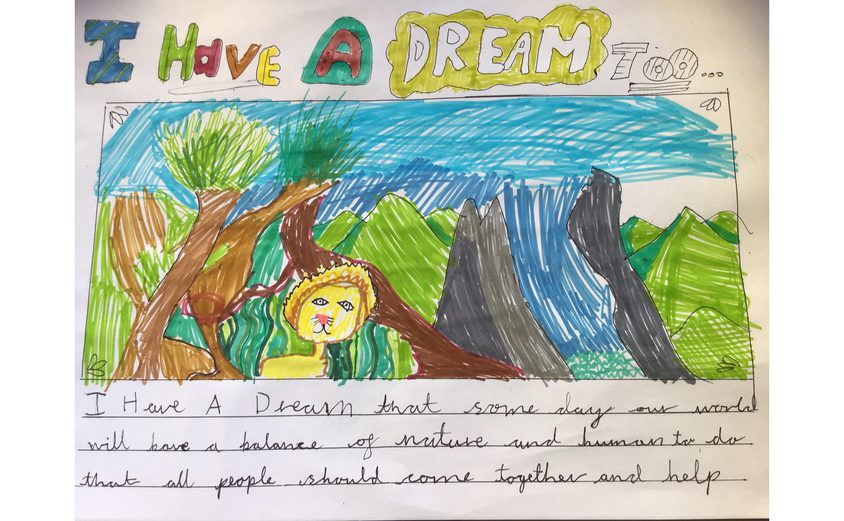 I Have A DREAM Too...
I Have A Dream that some day our world
will have a balance of nature and human to do
that all people should come together and help